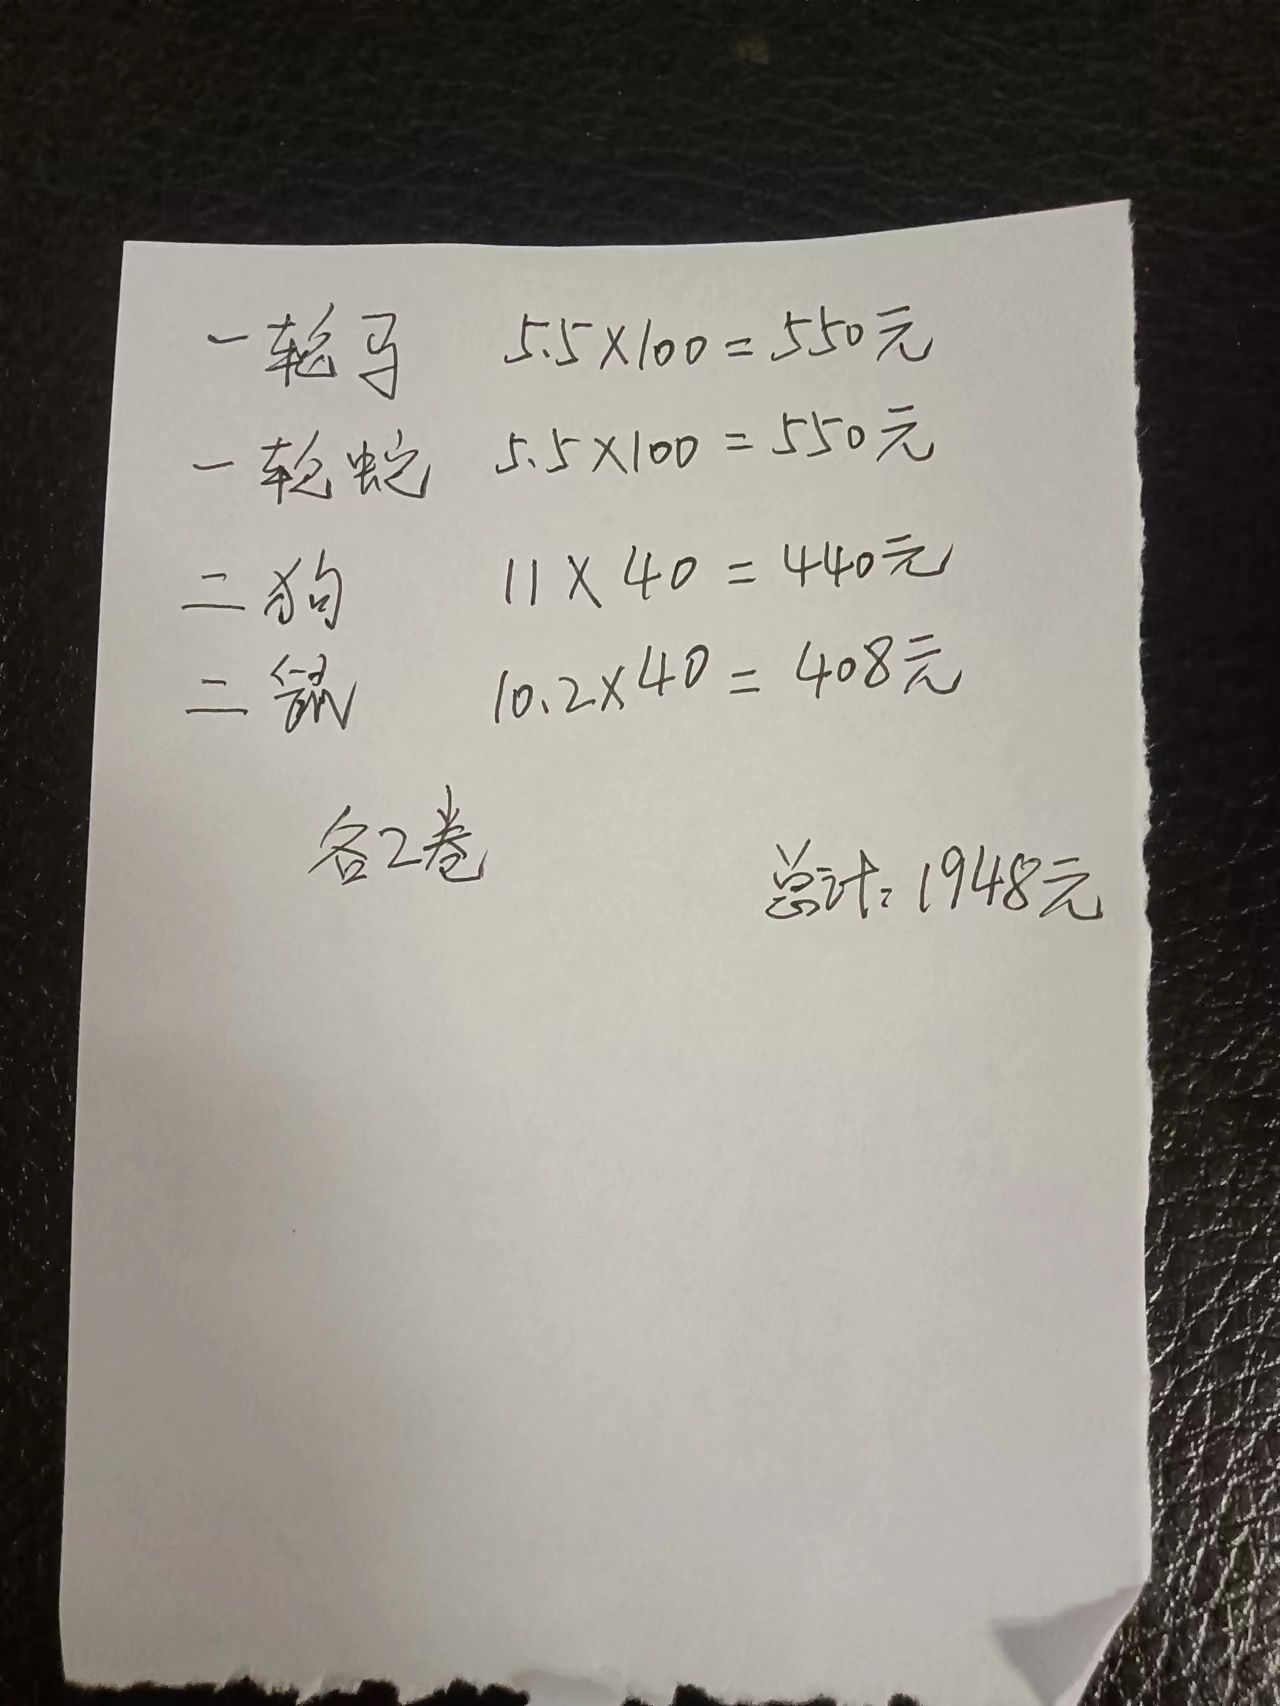 一轮马 5.5×100=550元
一轮蛇 5.5×100=550元
二狗 11×40=440元
二鼠 10.2×40=408元
各2卷
总计:1948元